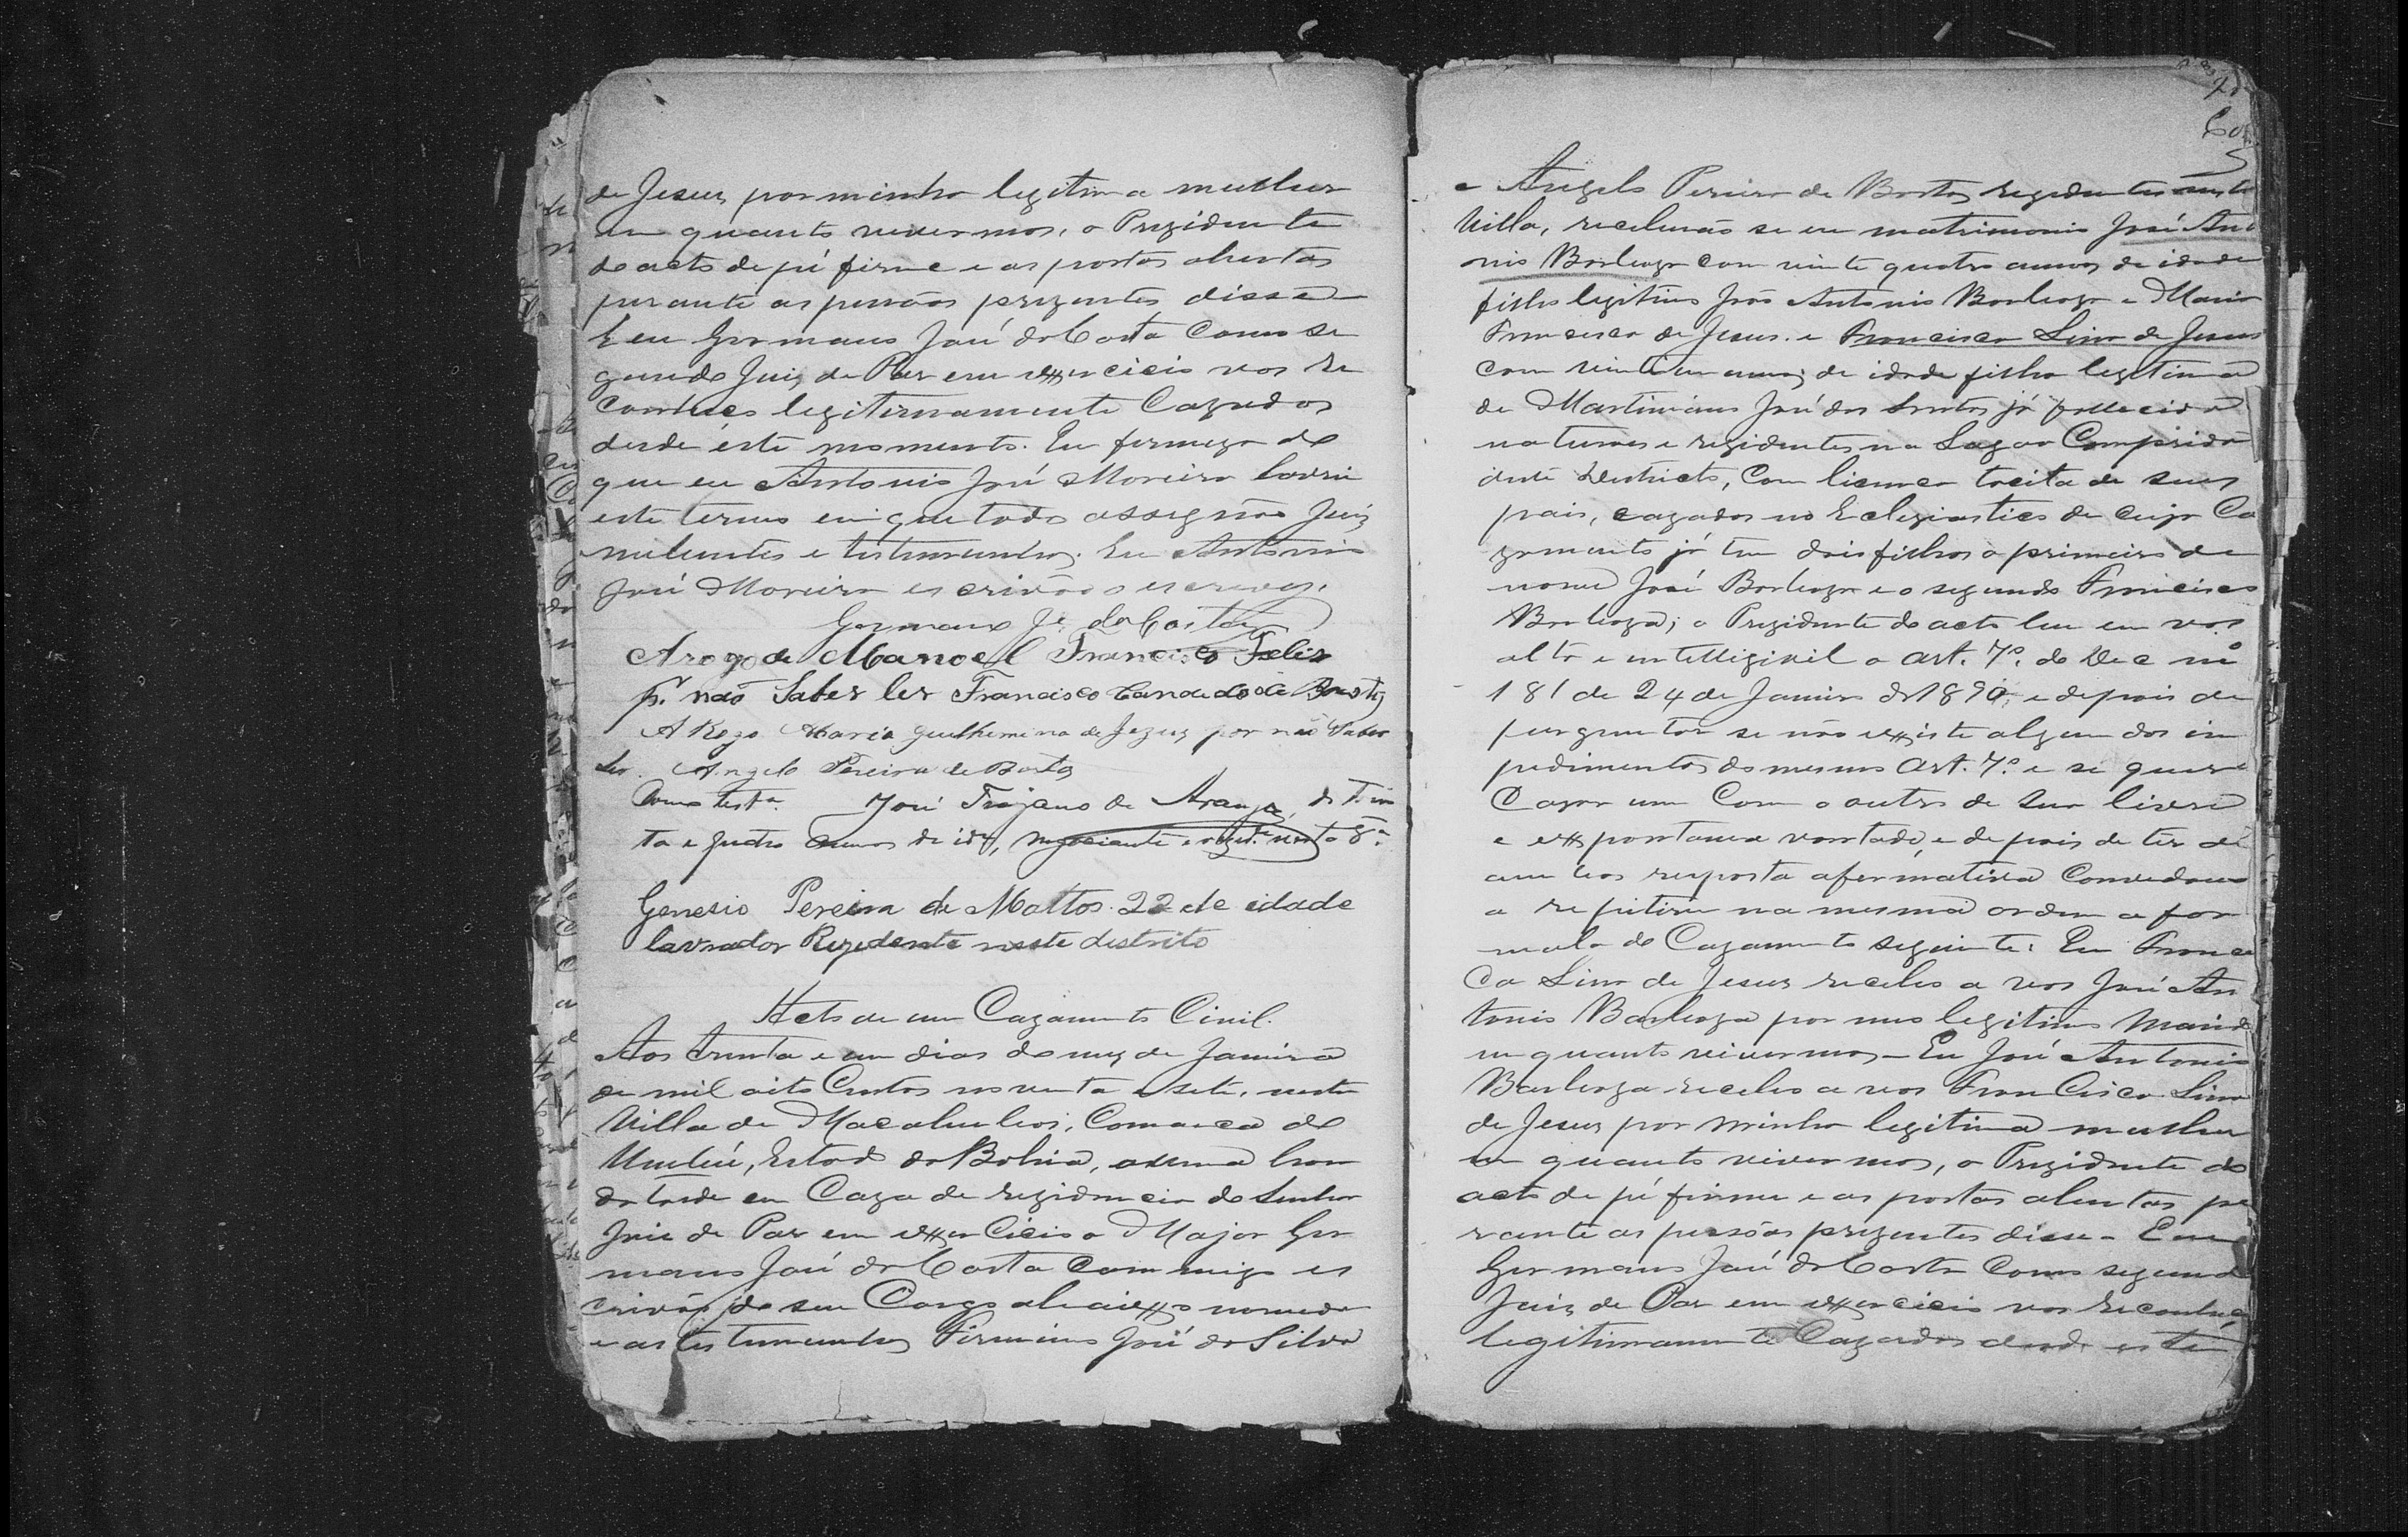 de Jesus, por minha legitima mulher
em quanto vivermos, o Prezidente
do acto de pé firme e as portas abertas
perante as pessôas prezentes disse =
E eu Germano José da Costa como se
gundo Juiz de Paz em exxercicio vos re
conheço legitimamente Cazados
desde éste momento. En firmeza do
que eu Antonio José Moreira lavrei
este termo em que todos assignão Juiz
nubentes e testemunhas. Eu Antonio
José Moreira escrivão o escrevy.
Germano Jé. da Costa
A rogo de Manoel Francisco Felix
pr. não Saber ler Francisco Candido de Bastos
A Rogo Maria Guilhermina de Jezus por não Saber
ler. Angelo Pereira de Bastos
Como testa. José Trajano de Araujo, de Trin
ta e quatro annos de ide, negociante e rezde. nesta
Genesio Pereira de Mattos. 22 de idade
lavrador Rezedente neste distrito
Acto de um Cazamento Civil.
Aos trinta e um dias do mez de Janeiro
de mil oito Centos noventa e sete, nesta
Villa de Macahubas, Comarca do
Urubú, Estado da Bahia, a uma hora
da tarde em Caza de rezidencia do Senhor
Juiz de Paz em exxerCicio o Major Ger
mano José da Costa commigo es
crivão de seu Cargo abaixxo nomeado
e as testemunhas Firmino José da Silva
e Angelo Pereira de Bastos rezidentes nesta
Villa, receberão se em matrimonio José Anto
nio Barboza com vinte quatro annos de idade
filho legitimo João Antonio Barboza e Maria
Francisca de Jesus. e Francisca Lina de Jesus
com vinte um annos de idade filha legitima
de Martiniano José dos Santos já fallecido
naturaes e rezidentes na Lagoa Comprida
deste Destricto, Com licença tacita de seus
pais, cazados no Eclesiastico de cujo Ca
zamento já tem dois filhos o primeiro de
nome José Barboza e o segundo Francisco
Barboza; o Prezidente do acto leu em vos
alta e intelligivil o art. 7º. do Dec nº
181 de 24 de Janeiro de 1890; e depois de
perguntar se não exxiste algum dos im
pedimentos do mesmo Art. 7º. e se quer
Cazar um Com o outro de sua livre
e exxpontanea vontade, e depois de ter de
ambos resposta afermativa Convidou os
a repitirem na mesma ordem a for
mula do Cazamento seguinte: Eu Francis
Ca Lina de Jesus recebo a vos José An
tonio Barboza por meu legitimo marido
em quanto vivermos = Eu José Antonio
Barboza recebo a vos FranCisca Lina
de Jesus por minha legitima mulher
em quanto vivermos, o Prezidente do
acto de pé firme e as portas abertas pe
rante as pessôas prezentes disse = E eu
Germano José da Costa Como segundo
Juiz de Paz em exxercicio vos reconheço
legitimamente Cazados desde este